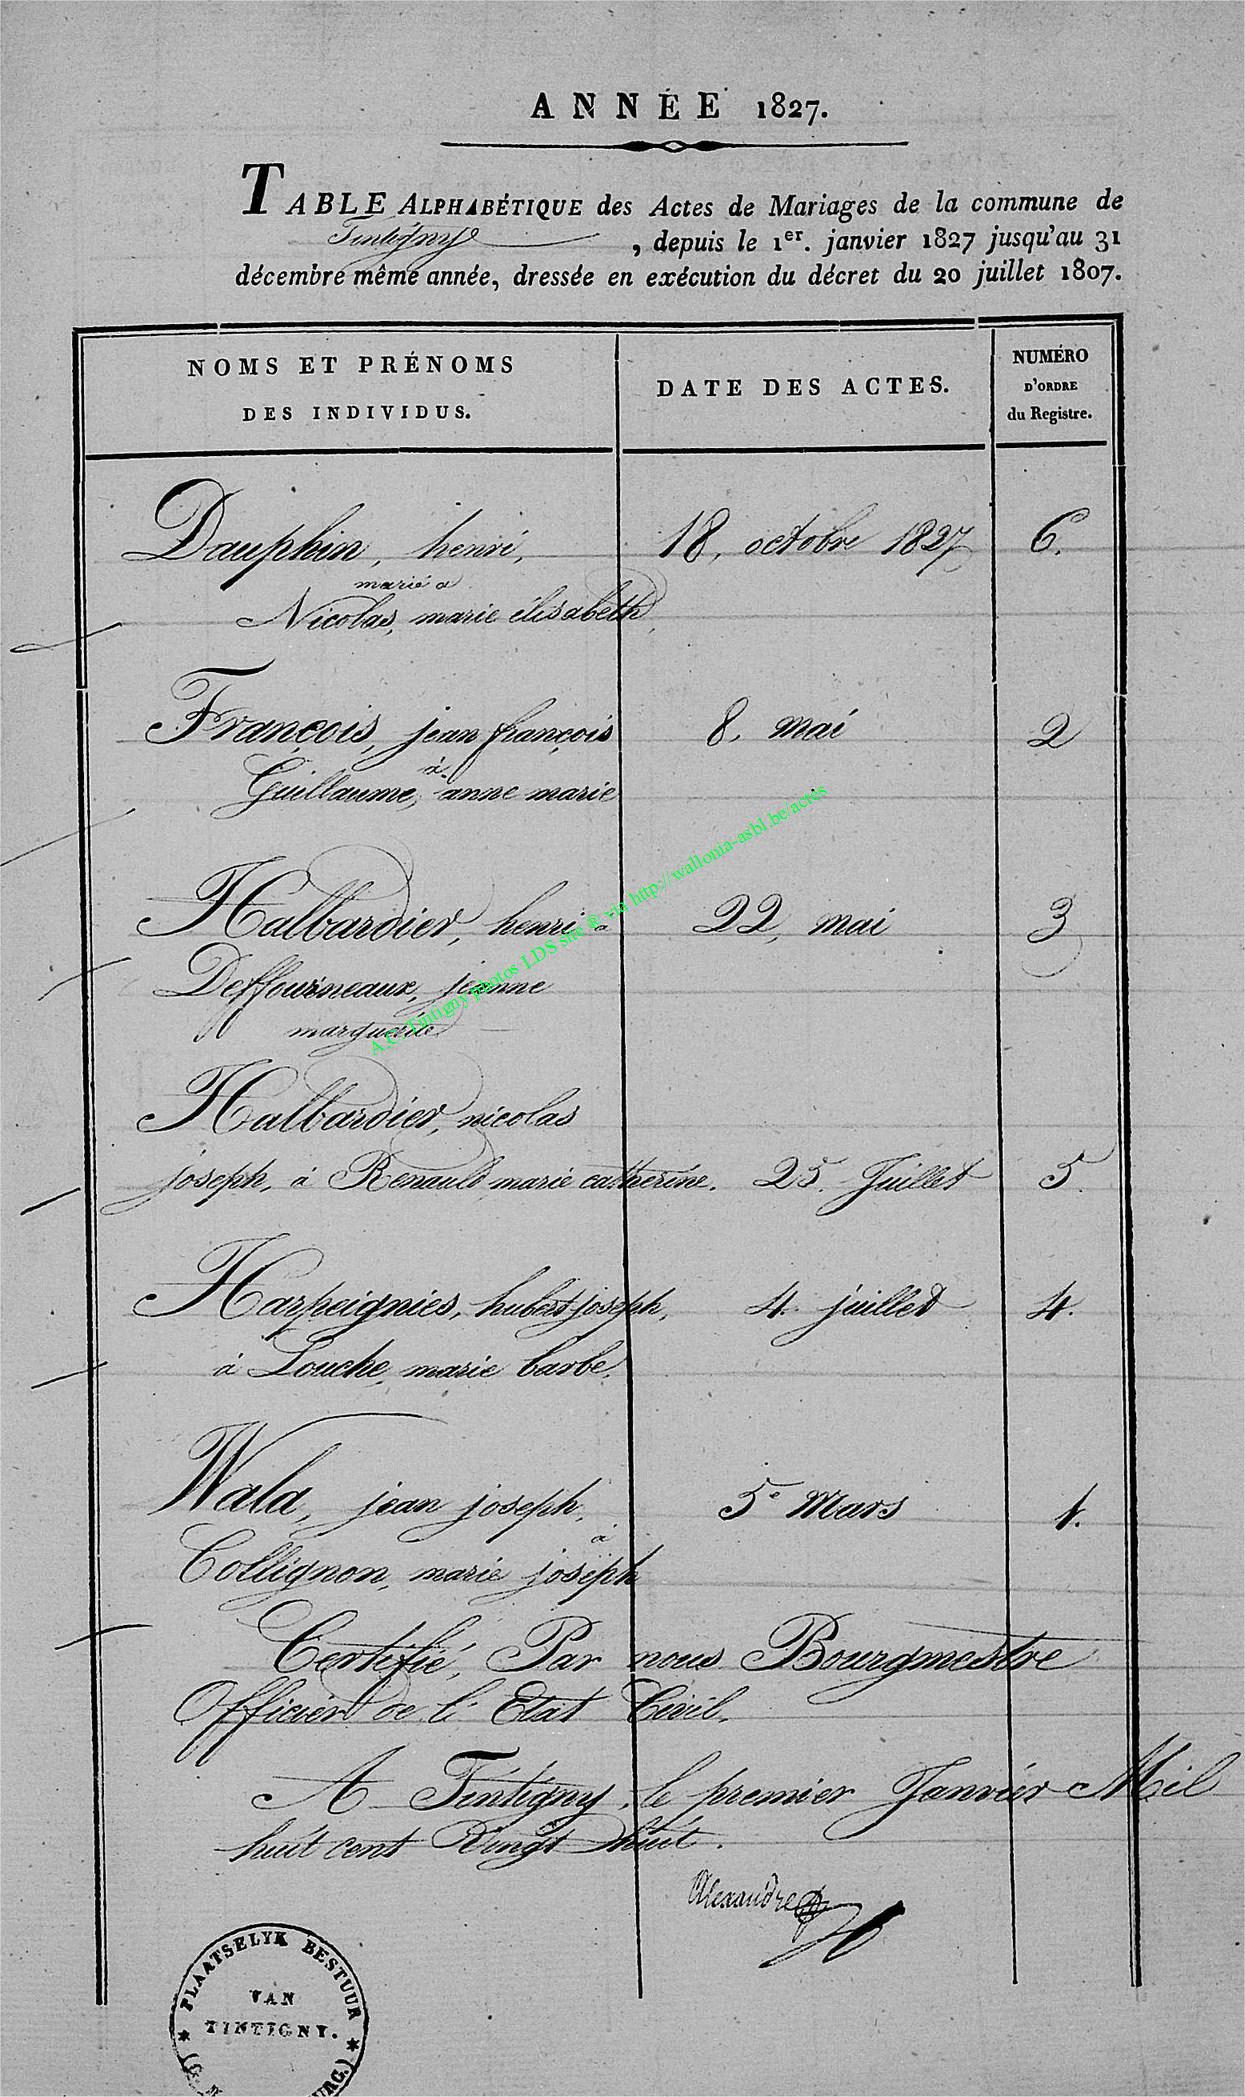 ANNÉE 1827.
TABLE ALPHABÉTIQUE des Actes de Mariages de la commune de
Tintigny, depuis le 1er. janvier 1827 jusqu'au 31
décembre même année, dressée en exécution du décret du 20 juillet 1807.
NOMS ET PRÉNOMS
DES INDIVIDUS.
DATE DES ACTES.
NUMÉRO
D'ORDRE
du Registre.
Dauphin, henri, 18, octobre 1827 6.
marié a
Nicolas, marie élisabeth,
François, jean françois 8, mai 2
à
Guillaume, anne marie
Halbardier, henri à 22, mai 3
Deffourneaux, jeanne
marguerite
Halbardier, nicolas
joseph, à Renauld marie catherine. 25. Juillet 5.
Harpeignies, hubert joseph, 4. juillet 4.
à Louche, marie barbe,
Wala, jean joseph, 5e Mars 1.
à
Collignon, marie joseph
Certifié, Par nous Bourgmestre
Officier de l'Etat Civil,
A Tintigny, le premier Janvier Mil
huit cent Vingt huit.
Alexandre
PLAATSELYK BESTUUR
VAN
TINTIGNY.
A.C. Tintigny photos LDS site @ via http://wallonia-asbl.be/actes